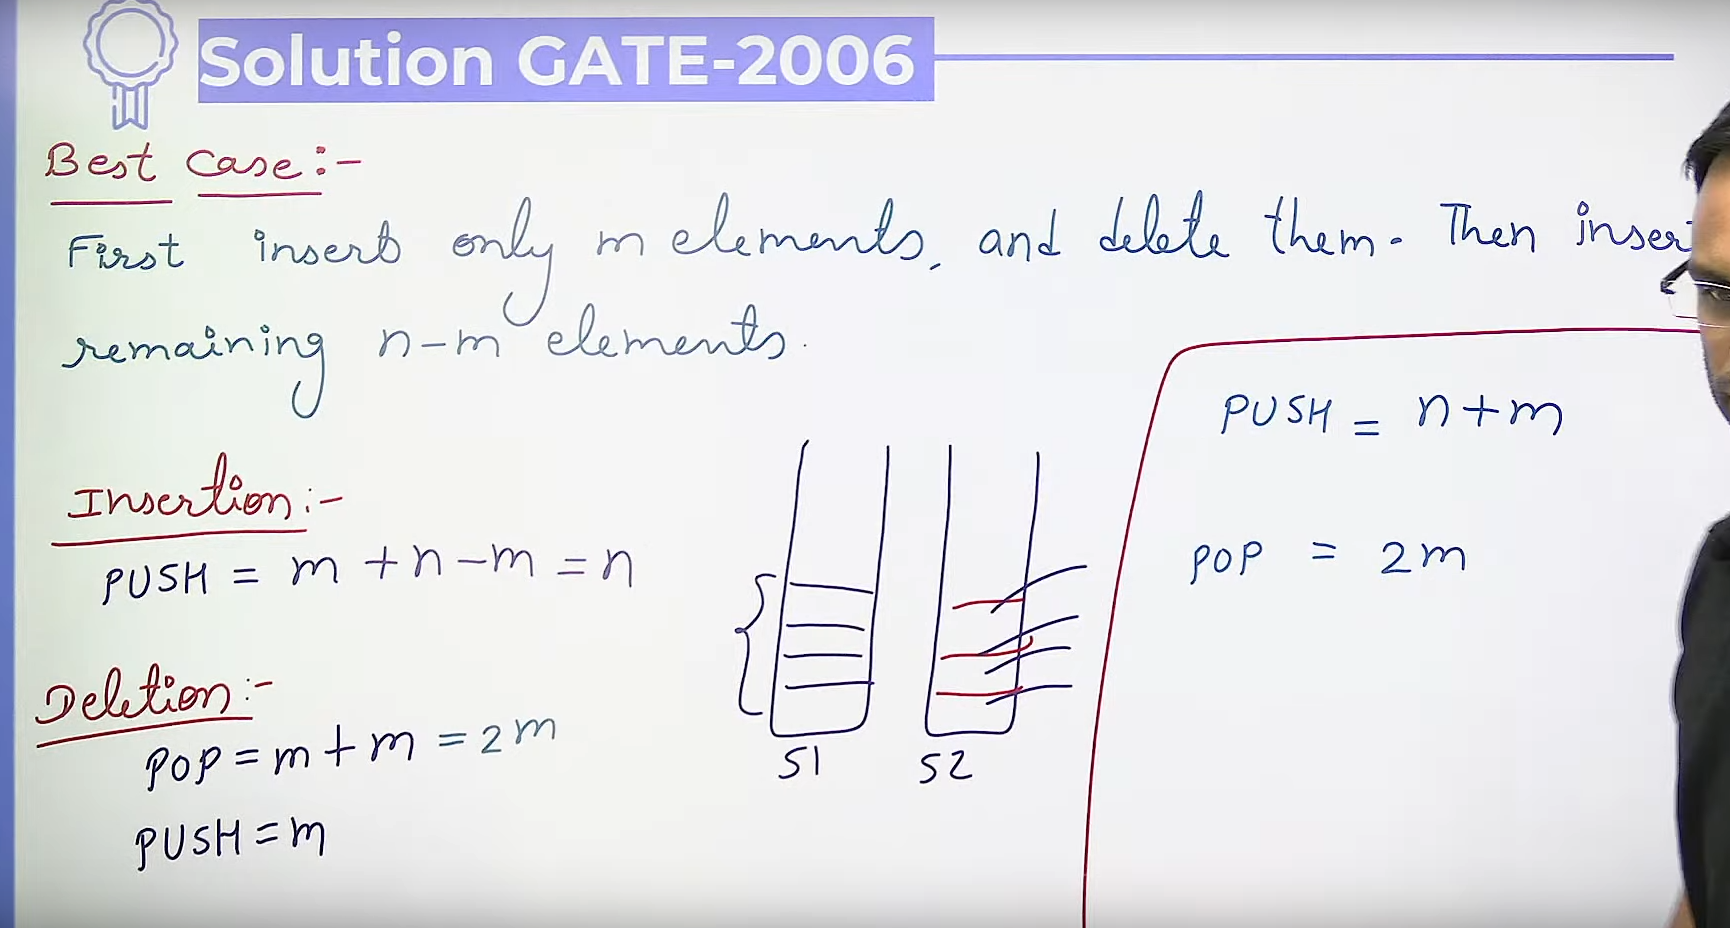 Solution GATE-2006
Best Case:-
First insert only m elements, and delete them. Then inser
remaining n-m elements.
Insertion:-
PUSH = m+n-m = n
Deletion:-
POP = m+m = 2m
PUSH = m
S1 S2
PUSH = n+m
POP = 2m